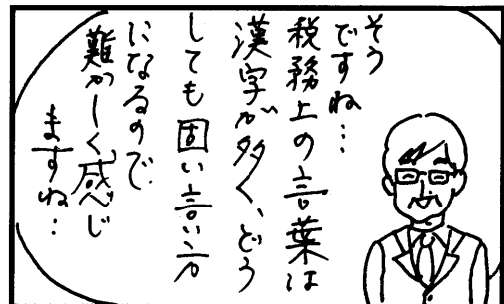 そう
ですね…
税務上の言葉は
漢字が多く、どう
しても固い言い方
になるので
難かしく感じ
ますね…